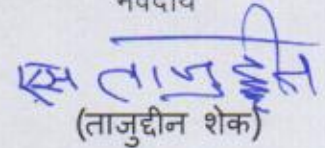 भवदीय
एस ताजुद्दीन
(ताजुद्दीन शेक)